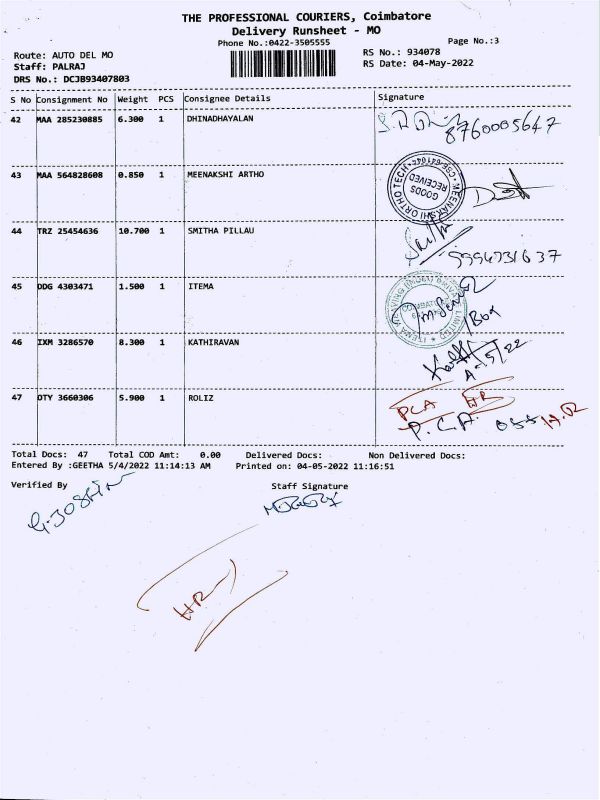 THE PROFESSIONAL COURIERS, Coimbatore
Delivery Runsheet - MO
Phone No.:0422-3505555
Page No.:3
Route: AUTO DEL MO
RS No.: 934078
Staff: PALRAJ
RS Date: 04-May-2022
DRS No.: DCJB93407803
S No Consignment No Weight PCS Consignee Details Signature
42 MAA 285230885 6.300 1 DHINADHAYALAN
8760005647
43 MAA 564828608 0.850 1 MEENAKSHI ARTHO
MEENAKSHI ORTHO TECH
GOODS
RECEIVED
44 TRZ 25454636 10.700 1 SMITHA PILLAU
9994731637
45 DDG 4303471 1.500 1 ITEMA
1Box
46 IXM 3286570 8.300 1 KATHIRAVAN
47 OTY 3660306 5.900 1 ROLIZ
PCA HR
P.C.A.
Total Docs: 47 Total COD Amt: 0.00 Delivered Docs: Non Delivered Docs:
Entered By :GEETHA 5/4/2022 11:14:13 AM Printed on: 04-05-2022 11:16:51
Verified By Staff Signature
G.JOSHIN
HR